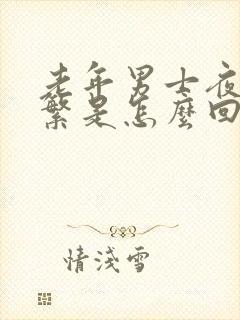 老年男士夜
繁是怎麼回
情淺雪